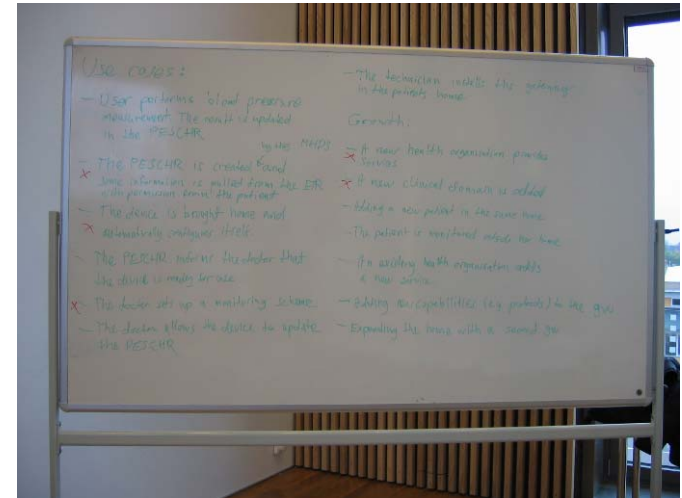 Use cases:
- User performs blood pressure
measurement. The result is updated
in the PESCHR
by the MHDS
- The PESCHR is created and
some information is pulled from the
with permission from the patient
- The device is brought home and
automatically configures itself.
- The PESCHR informs the doctor that
the device is ready for use
- The doctor sets up a monitoring scheme
- The doctor allows the device to update
the PESCHR
- The technician installs the gateway
in the patients home
Growth:
- A new health organisation provides
services
- A new clinical domain is added
- Adding a new patient in the same home
- The patient is monitored outside her home
- An existing health organisation adds
a new service
- Adding new capabilities (e.g. protocols) to the gw
- Expanding the home with a second gw